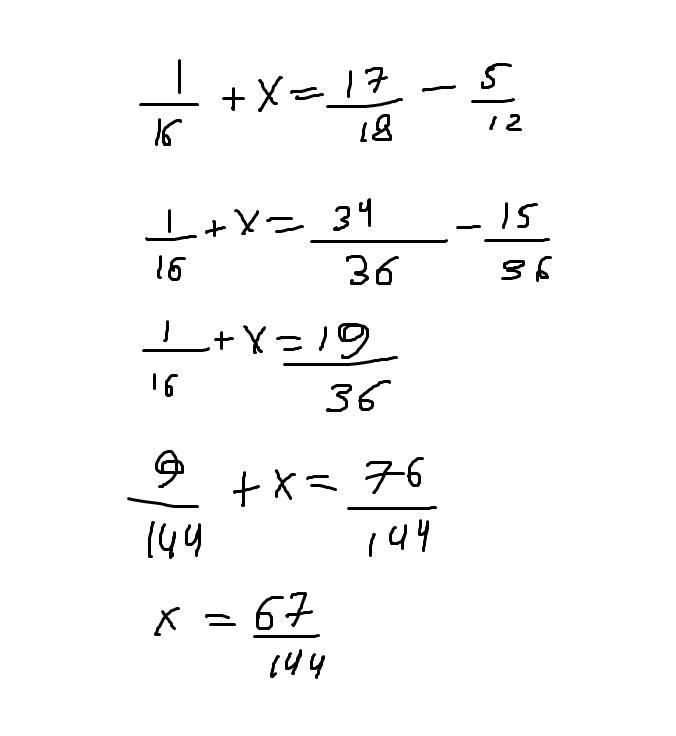 1/16 + x = 17/18 - 5/12
1/16 + x = 34/36 - 15/36
1/16 + x = 19/36
9/144 + x = 76/144
x = 67/144